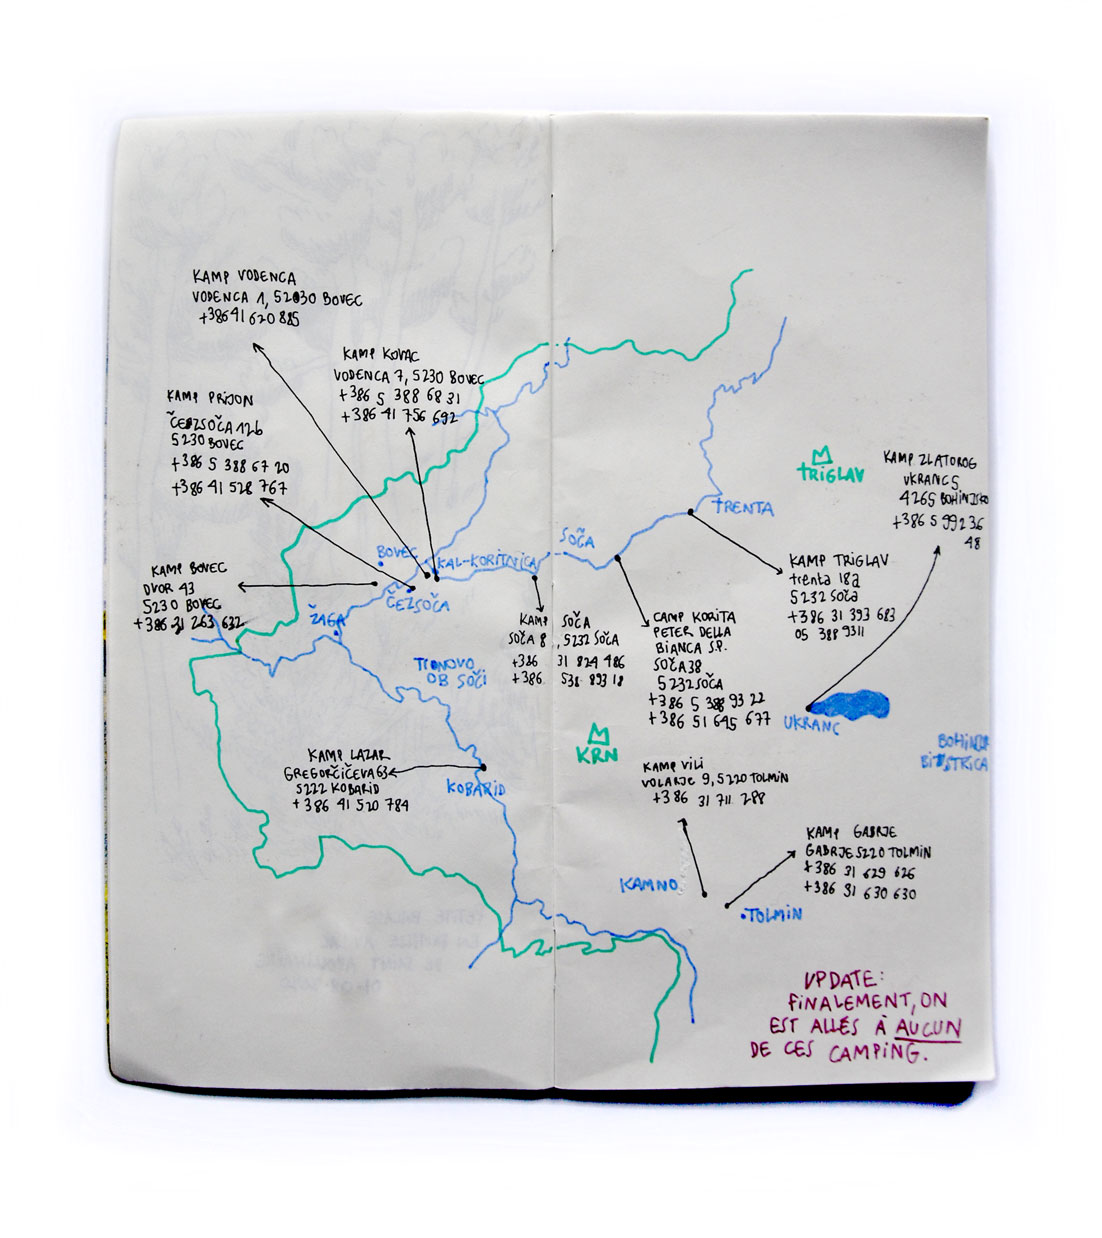 KAMP VODENCA
VODENCA 1, 52030 BOVEC
+386 41 620 885
KAMP KOVAC
VODENCA 7, 5230 BOVEC
+386 5 388 68 31
+386 41 756 692
KAMP PRIJON
ČEZSOČA 126
5230 BOVEC
+386 5 388 67 20
+386 41 528 767
KAMP BOVEC
DVOR 43
5230 BOVEC
+386 31 263 632
BOVEC
KAL-KORITNICA
ČEZSOČA
ŽAGA
SOČA
TRENTA
TRIGLAV
KAMP ZLATOROG
UKRANC5
4265 BOHINJSKO
+386 5 99236
48
KAMP TRIGLAV
trenta 18a
5232 Soča
+386 31 393 683
05 388 9311
KAMP SOČA
SOČA 8, 5232 SOČA
+386 31 824 486
+386 538 893 18
CAMP KORITA
PETER DELLA
BIANCA S.P.
SOČA38
5232SOČA
+386 5 388 93 22
+386 51 645 677
TRNOVO
OB SOČI
UKRANC
BOHINJSKA
BISTRICA
KRN
KAMP LAZAR
GREGORČIČEVA 63
5222 KOBARID
+386 41 520 784
KOBARID
KAMP VILI
VOLARJE 9, 5220 TOLMIN
+386 31 711 288
KAMP GABRJE
GABRJE 5220 TOLMIN
+386 31 629 626
+386 31 630 630
KAMNO
TOLMIN
UPDATE:
FINALEMENT, ON
EST ALLÉS À AUCUN
DE CES CAMPING.